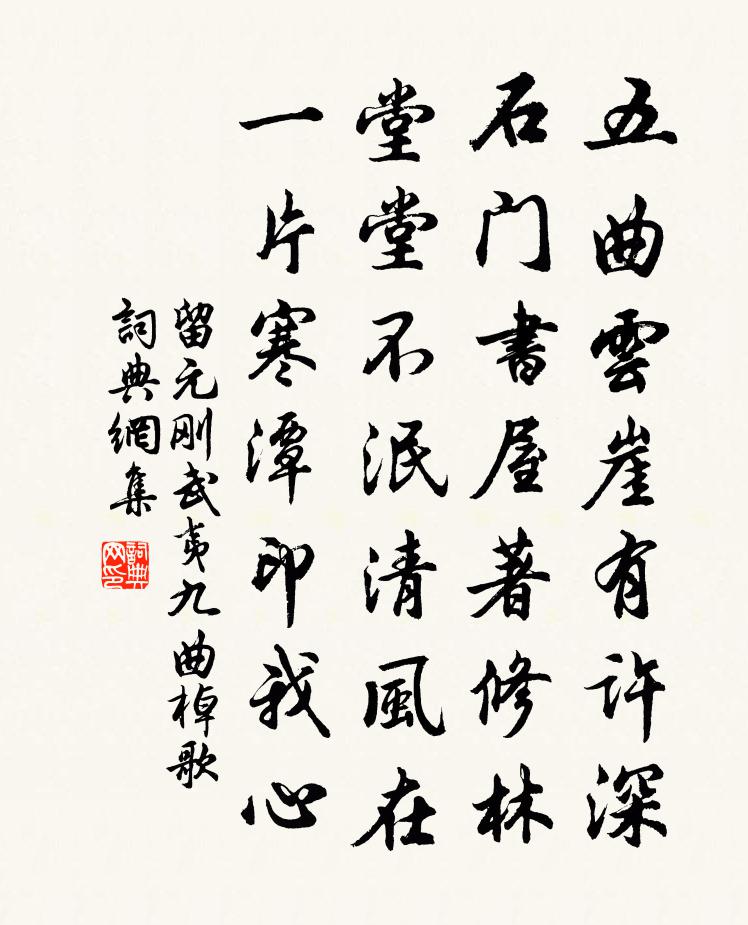 五曲雲崖有许深
石门書屋著修林
堂堂不泯清風在
一片寒潭印我心
留元刚武夷九曲棹歌
詞典網集
詞典网印